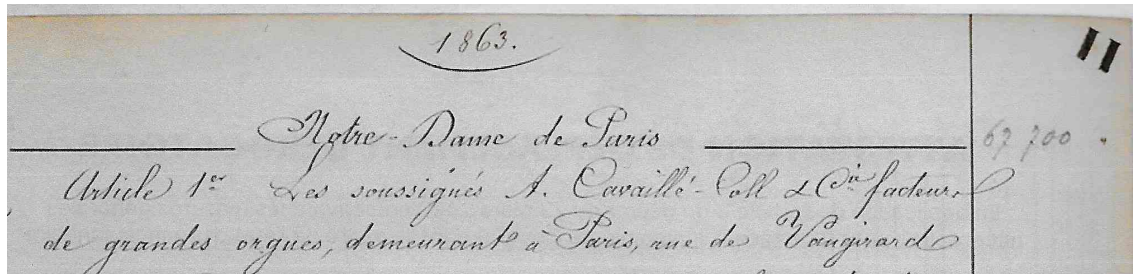 1863.
11
Notre-Dame de Paris
67 700
Article 1er Les soussignés A. Cavaillé-Coll & Cie facteurs
de grandes orgues, demeurant à Paris, rue de Vaugirard